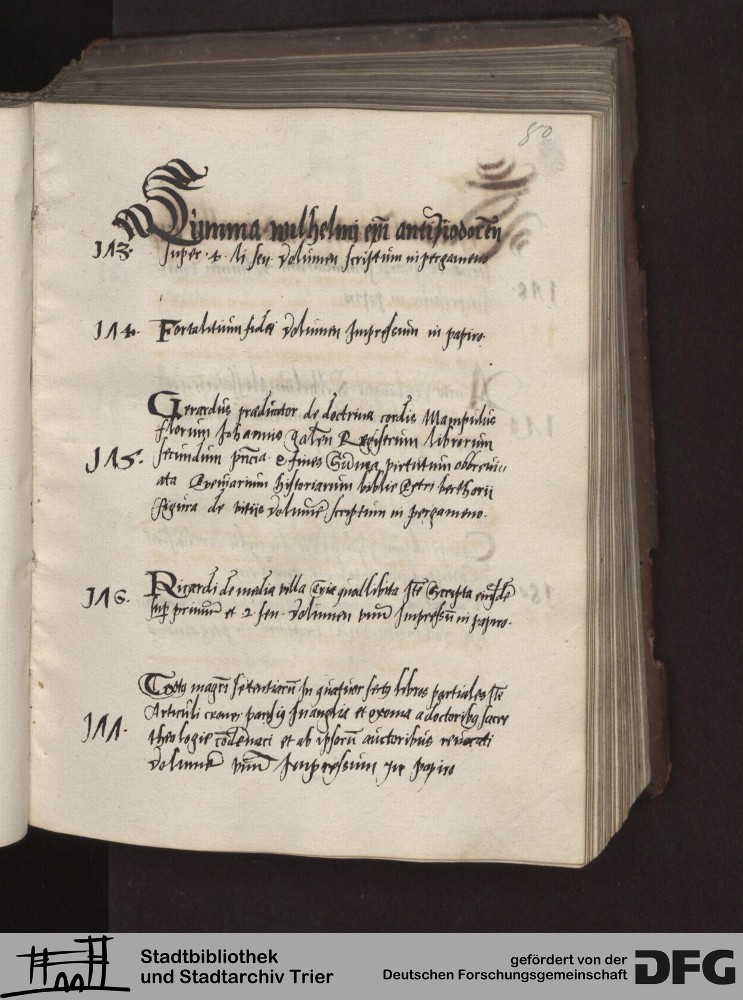 80
Summa wilhelmi epi antisiodoren
J73. super 4 li sen volumen scriptum in pergameno
J74. Fortalitium fidei volumen Impressum in papiro.
Gerardus predicator de doctrina cordis Manipulus
florum Johannis galen Registrum librorum
J75. secundum & fines Suma virtutum abbreui-
ata historiarum biblie Petri berthorii
figura de vitiis volumen scriptum in pergameno.
J76. Ricardi de media villa Tria quotlibeta Ite Scripta eiusde
sup primum et 2 sen. volumen unu Impressu in papiro.
Textus magri sententiaru In quatuor libros partiales Ite
Articuli parisius In anglia et a doctoribus sacre
J77. theologie codenati et ab ipsoru auctoribus reuocati
Volumen unu Impressum in papiro
Stadtbibliothek
und Stadtarchiv Trier
gefördert von der
Deutschen Forschungsgemeinschaft
DFG